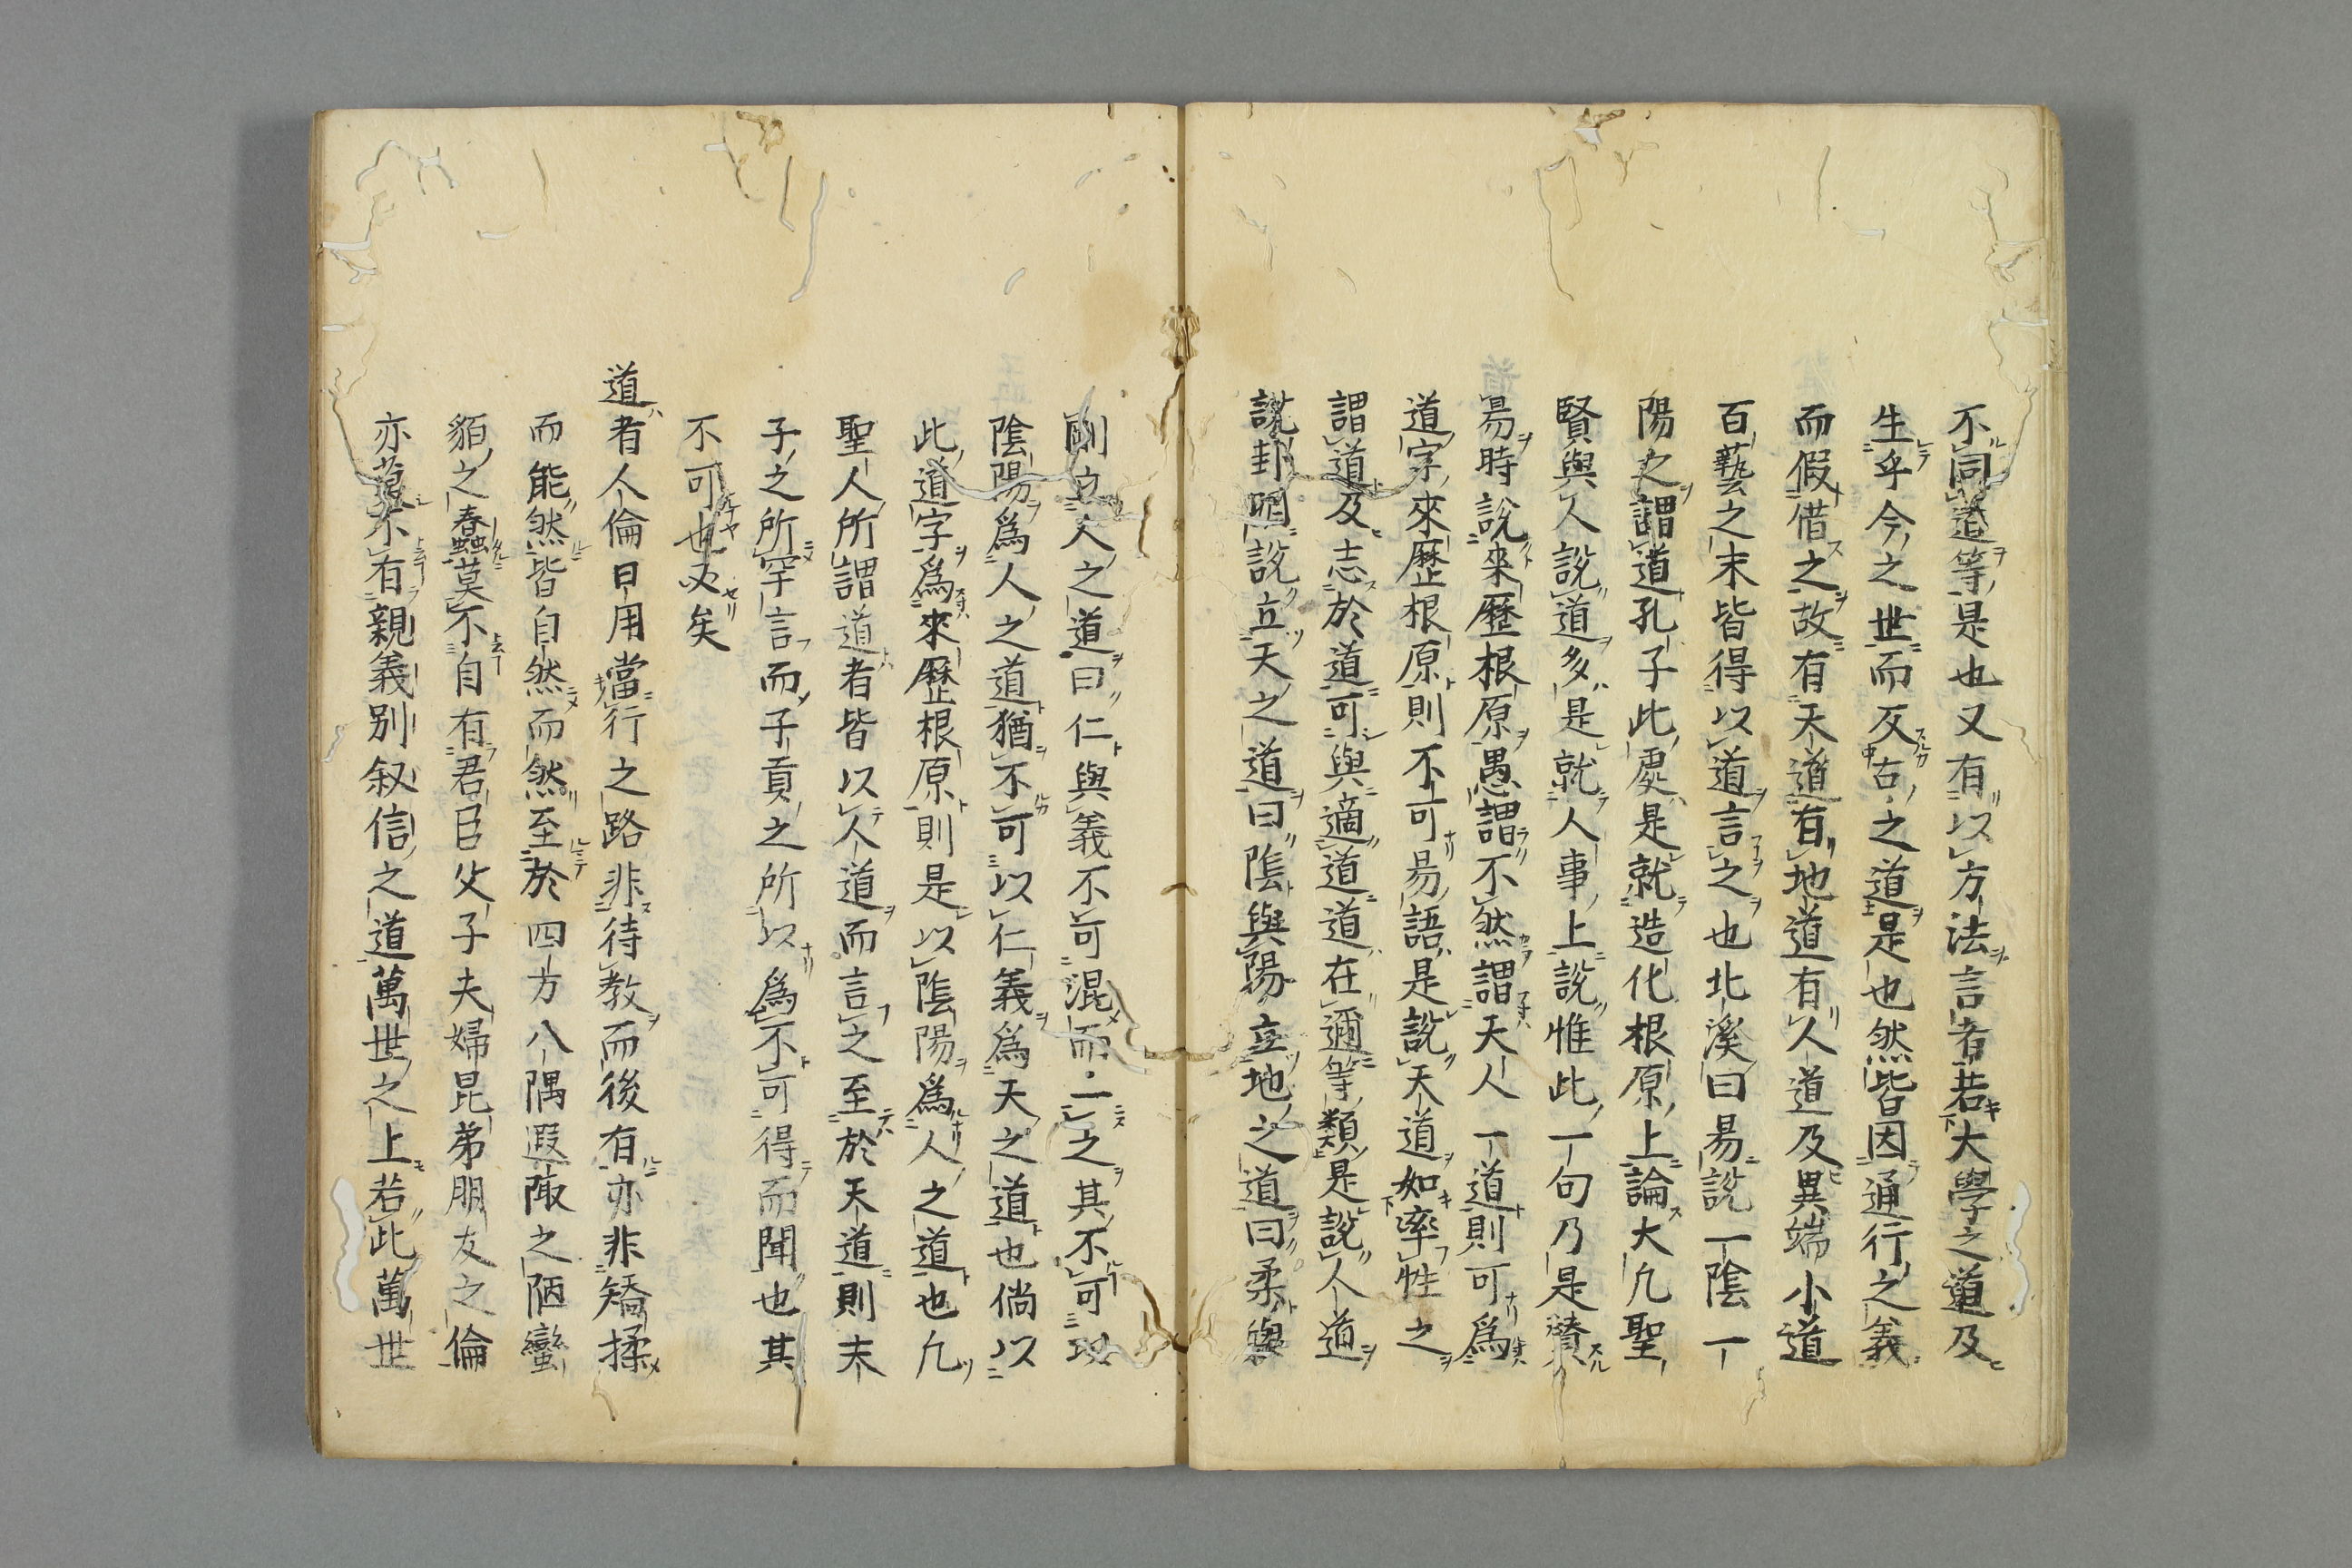 不同道等是也又有以方法言者若大學之道及
生乎今之世而反古之道是也然皆因通行之義
而假借之故有天道有地道有人道及異端小道
百藝之末皆得以道言之也北溪曰易說一陰一
陽之謂道孔子此處是就造化根原上論大凡聖
賢與人說道多是就人事上說惟此一句乃是贊
易時說來歷根原愚謂不然謂天人一道則可爲
道字來歷根原則不可易語是說天道如率性之
謂道及志於道可與適道道在邇等類是說人道
說卦明說立天之道曰陰與陽立地之道曰柔與
剛立人之道曰仁與義不可混而一之其不可以
陰陽爲人之道猶不可以仁義爲天之道也倘以
此道字爲來歷根原則是以陰陽爲人之道也凡
聖人所謂道者皆以人道而言之至於天道則夫
子之所罕言而子貢之所以爲不可得而聞也其
不可也必矣
道者人倫日用當行之路非待教而後有亦非矯揉
而能然皆自然而然至於四方八隅遐陬之陋蠻
貊之蠢莫不自有君臣父子夫婦昆弟朋友之倫
亦莫不有親義別叙信之道萬世之上若此萬世